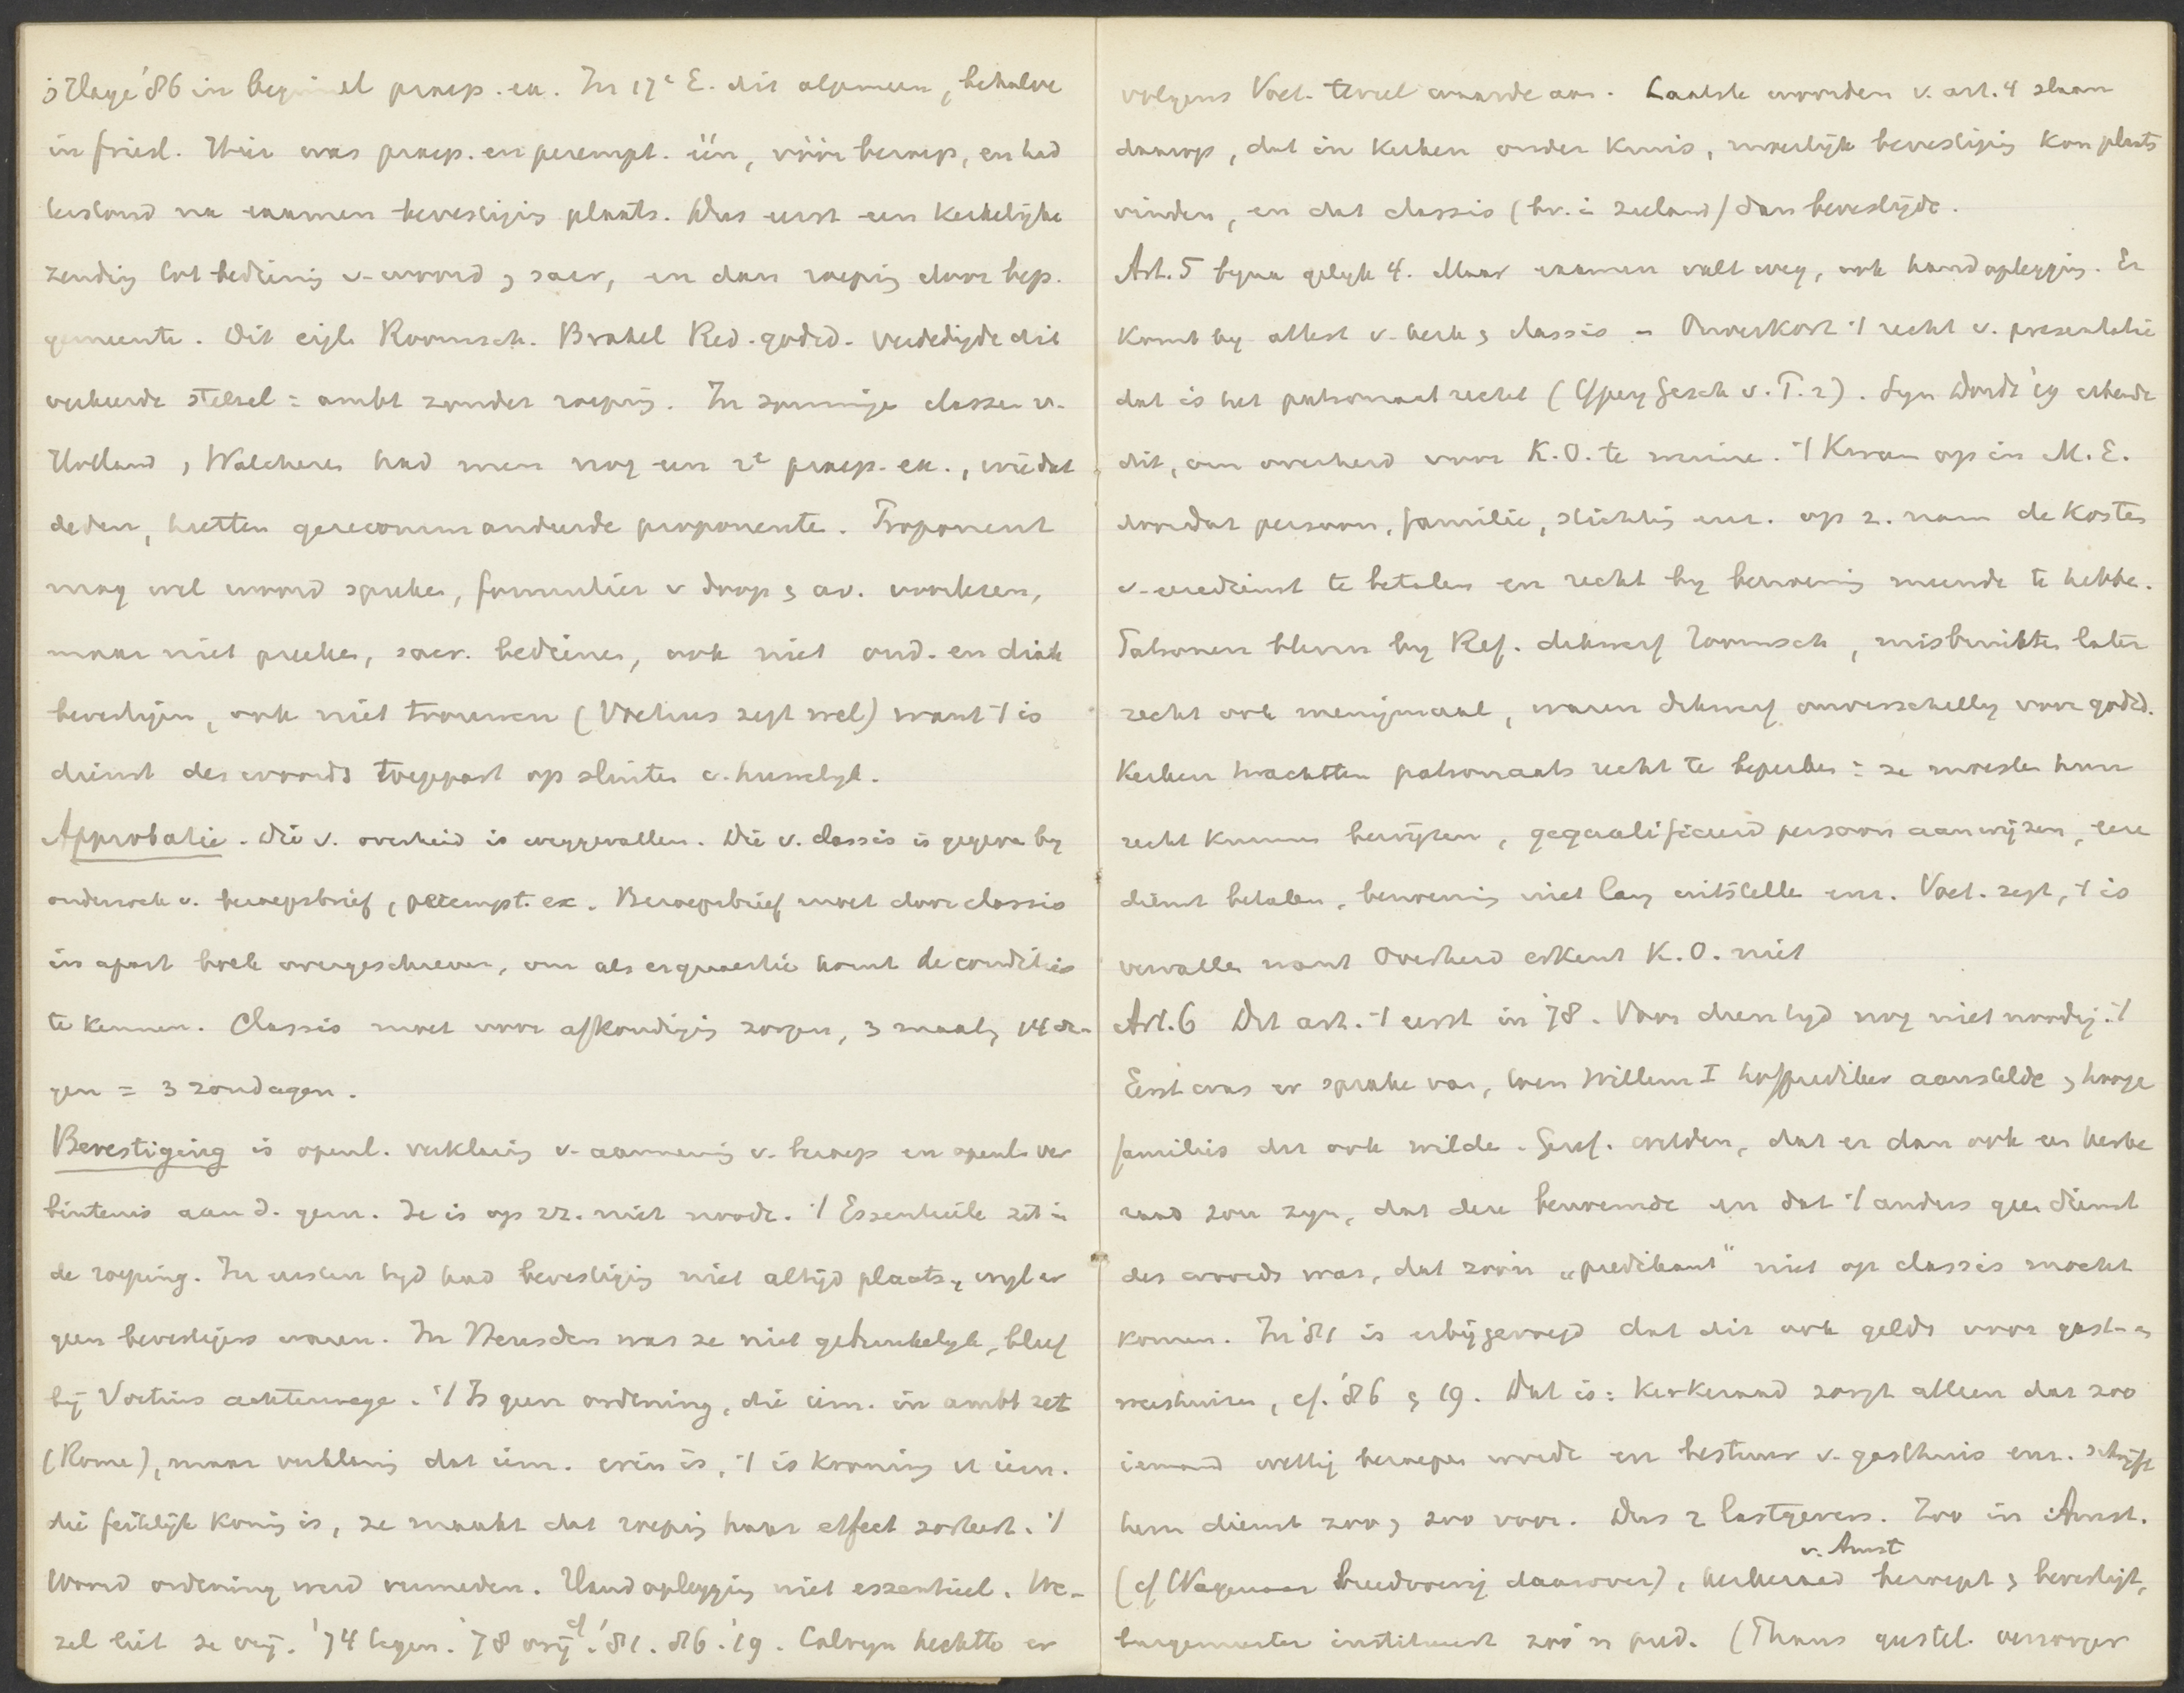 's Hage '86 in beginsel praep. ex. In 17e E. dit algemeen, behalve
in Friesl. Hier was praep. en perempt. één, vóór beroep, en had
terstond na examen bevestiging plaats. Dus eerst een kerkelijke
zending tot bediening v. woord & sacr, en dan roeping door bep.
gemeente. Dit eigl. Roomsch. Brakel Red. godsd. verdedigde dit
verkeerde stelsel = ambt zonder roeping. In sommige classen v.
Holland & Walcheren had men nog een 2e praep. ex., wie dat
deden, heetten gerecommandeerde proponenten. Proponent
mag wel woord spreken, formulier v doop & av. voorlezen,
maar niet preeken, sacr. bedienen, ook niet oud. en diak
bevestigen, ook niet trouwen (Voetius zegt wel) want 't is
dienst des woords toegepast op sluiten v. huwelyk.
Approbatie. Die v. overheid is weggevallen. Die v. classis is gegeven by
onderzoek v. beroepsbrief & perempt. ex. Beroepsbrief moet door classis
in apart boek overgeschreven, om als er quaestie komt de condities
te kennen. Classis moet voor afkondiging zorgen, 3 maal, 14 da-
gen = 3 zondagen.
Bevestiging is openl. verklaring v. aanneming v. beroep en openl. ver
bintenis aan d. gem. Ze is op zz. niet noodz. 't Essentieele zit in
de roeping. In eersten tyd had bevestiging niet altijd plaats, wyl er
geen bevestigers waren. In Heusden was ze niet gebruikelyk, bleef
bij Voetius achterwege. 't Is geen ordening, die iem. in ambt zet
(Rome), maar verklaring dat iem. erin is, 't is kroning v iem.
die feitelijk koning is, ze maakt dat roeping haar effect sorteert. 't
Woord ordening werd vermeden. Handoplegging niet essentieel. We-
zel liet ze vrij. '74 tegen. '78 vrij cf '81. '86. '19. Calvyn hechtte er
volgens Voet. teveel waarde aan. Laatste woorden v. art. 4 slaan
daarop, dat in kerken onder kruis, moeilijk bevestiging kon plaats
vinden, en dat classis (bv. in Zeeland) dan bevestigde.
Art. 5 byna gelyk 4. Maar examen valt weg, ook handoplegging. Er
komt by attest v. kerk & classis – Onverkort 't recht v. presentatie
dat is het patronaatrecht ( Gesch v. T. 2). Syn Dordt '19 erkende
dit, om overheid voor K.O. te winnen. 't Kwam op in M.E.
doordat persoon, familie, stichting enz. op z. nam de kosten
v. eeredienst te betalen en recht by benoeming meende te hebben.
Patronen bleven by Ref. dikwerf Roomsch, misbruikten later
recht ook menigmaal, waren dikwerf onverschillig voor godsd.
Kerken trachtten patronaatsrecht te beperken = ze moesten hun
recht kunnen bewijzen, gequalificeerd persoon aanwijzen, eere
dienst betalen, benoeming niet lang uitstellen enz. Voet. zegt, 't is
vervallen want Overheid erkent K.O. niet
Art. 6 Dit art. 't eerst in '78. Voor dien tyd nog niet noodig. 't
Eerst was er sprake van, toen Willem I hofprediker aanstelde & hooge
families dit ook wilden. Geref. wilden, dat er dan ook een kerke
raad zou zyn, dat deze benoemde en dat 't anders geen dienst
des woords was, dat zoo'n „predikant" niet op classis mocht
komen. In '81 is erbijgevoegd dat dit ook geldt voor gast- en
weeshuizen, cf. '86 & 19. Dat is: kerkeraad zorgt alleen dat zoo
iemand wettig beroepen wordt en bestuur v. gasthuis enz. schrijft
hem dienst zoo & zoo voor. Dus 2 lastgevers. Zoo in Amst.
(cf Wagenaar breedvoerig daarover), kerkeraad v. Amst beroept & bevestigt,
burgemeester institueert zoo'n pred. (Thans geestel. verzorger